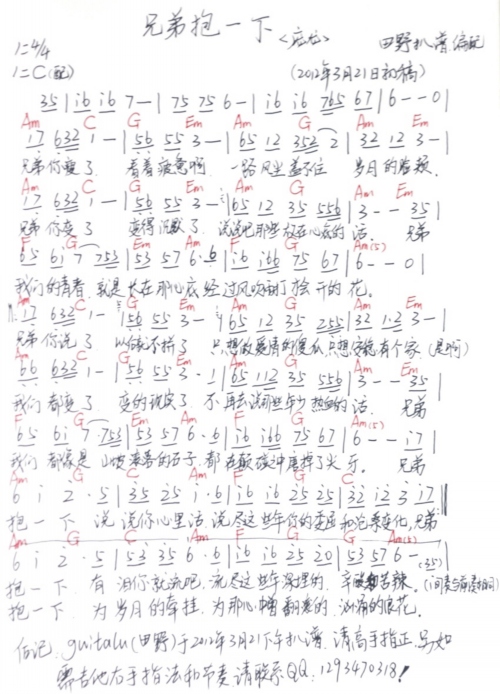 兄弟抱一下
<庞龙> 田野扒谱编配
1=4/4
1=C(配) (2012年3月21日初稿)
35 | i6 i6 7 — | 75 75 6 — | i6 i6 765 67 | 6 — — 0 |
Am C G Em Am G Am Em
17 632 1 — | 56 55 3 — | 65 12 352 2 | 32 12 3 — |
兄弟你瘦了 看着疲惫啊 一路风尘盖不住 岁月的脸颊.
Am C G Em Am G Am Em
17 632 1 — | 56 55 3 — | 65 12 35 556 | 3 — — 35 |
兄弟你变了 变得沉默了 说说吧那些放在心底的话. 兄弟
F G Em Am F G Am(5)
65 61 7 753 | 53 57 6 · 6 | i6 i66 75 67 | 6 — — 0 |
我们的青春 就是长在那心底 经过风吹雨打才会开的花.
Am C G Em Am G Am Em
17 632 1 — | 56 55 3 — | 65 12 35 255 | 32 12 3 — |
兄弟你说了 以后就不拼了 只想做爱情的傻瓜 只想安稳有个家 (是啊)
Am C G Em Am G Em
66 632 1 — | 56 55 3 · 1 | 65 12 35 556 | 3 — — 35 |
我们都变了 变的现实了 不再去说那些年少热血的话. 兄弟
F G Em Am F G Am(5)
65 6i 7 753 | 53 57 6 · 6 | i6 i66 75 67 | 6 — — i7 |
我们都像是 山坡滚落的石子 都在颠簸之中磨掉了尖牙. 兄弟
Am G C F G C
6 i 2 · 5 | 35 25 i · 6 | i6 i6 25 25 | 32 12 3 17 |
抱一下 说说你心里话 说尽这些年你的委屈和沧桑变化 兄弟
Am G C F G Am
6 i 2 · 5 | 53 35 6 · 6 | i6 i6 25 20 | 53 57 6 — (35) |
抱一下 有泪你就流吧. 流尽这些年深埋的 辛酸和苦辣. (间奏与前奏相同)
抱一下 为岁月的牵挂. 为那心中翻滚的 汹涌的浪花.
后记: guitalu(田野)于2012年3月21下午扒谱. 请高手指正. 另如
需吉他右手指法和节奏请联系QQ: 1293470318!